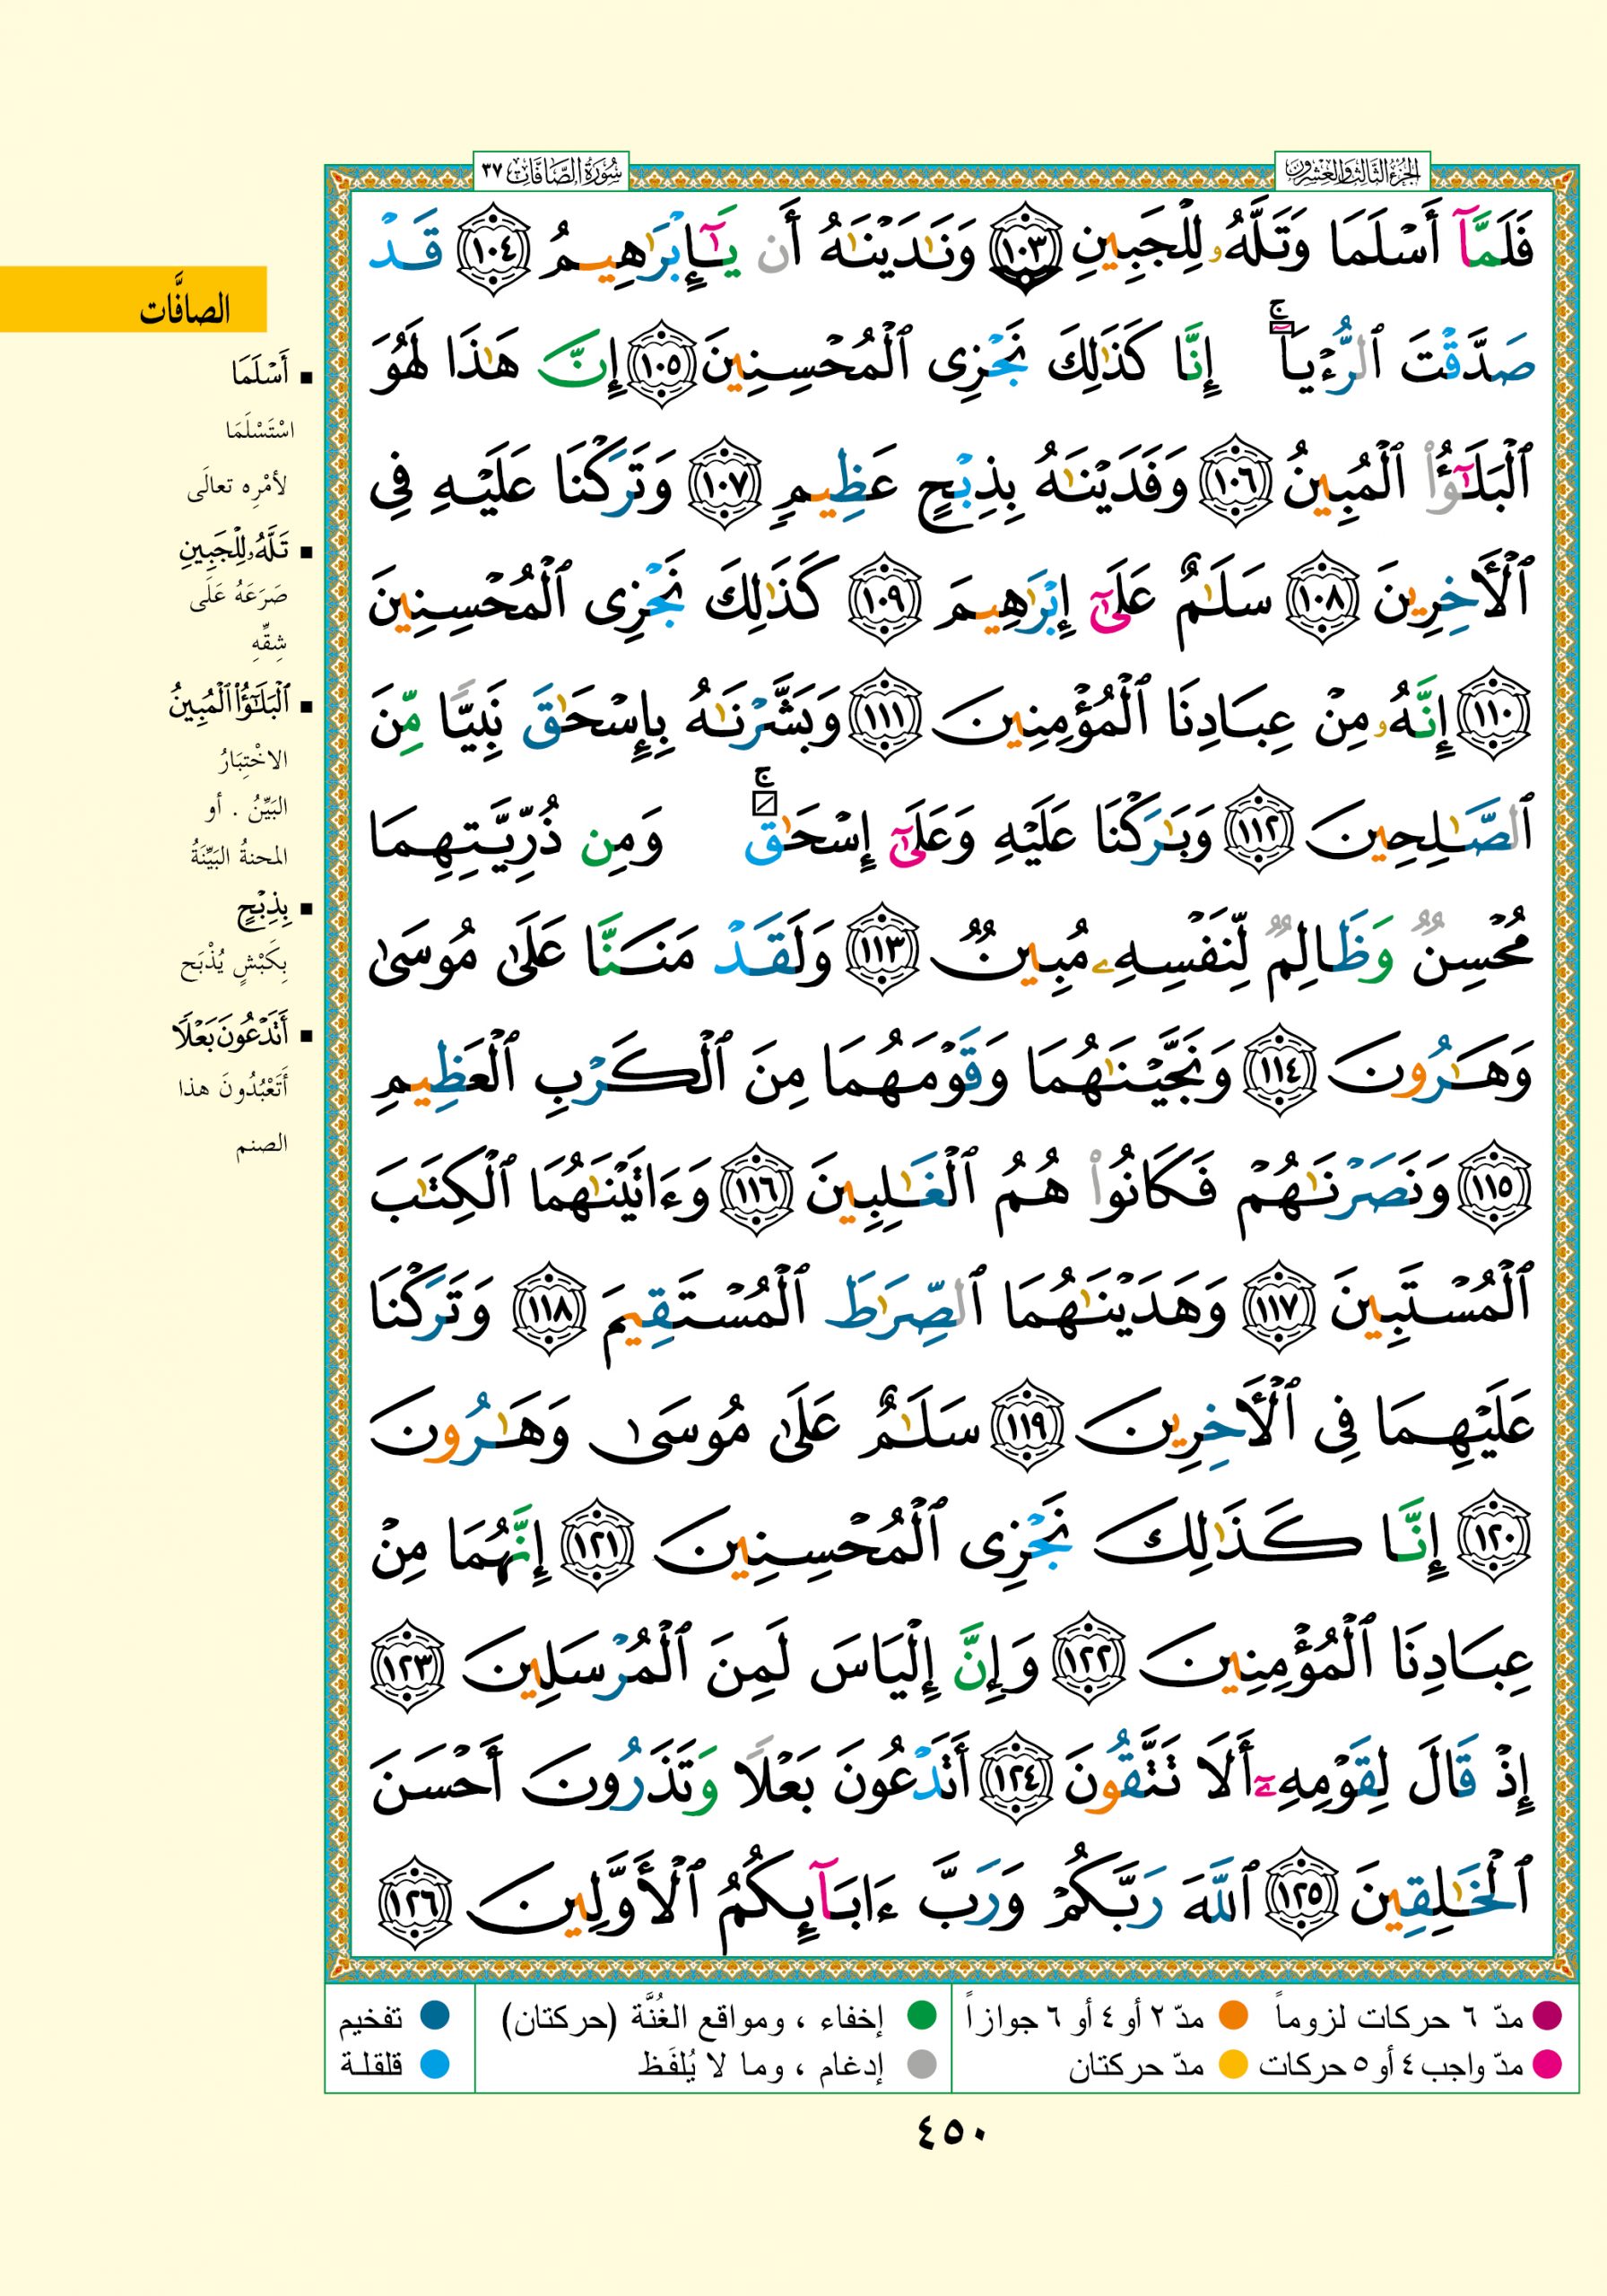 الجزء الثالث والعشرون
سُورَةُ الصَّافَّات ٣٧
فَلَمَّآ أَسْلَمَا وَتَلَّهُۥ لِلْجَبِينِ ١٠٣ وَنَٰدَيْنَٰهُ أَن يَٰٓإِبْرَٰهِيمُ ١٠٤ قَدْ
صَدَّقْتَ ٱلرُّءْيَآ ۚ إِنَّا كَذَٰلِكَ نَجْزِى ٱلْمُحْسِنِينَ ١٠٥ إِنَّ هَٰذَا لَهُوَ
ٱلْبَلَٰٓؤُا۟ ٱلْمُبِينُ ١٠٦ وَفَدَيْنَٰهُ بِذِبْحٍ عَظِيمٍ ١٠٧ وَتَرَكْنَا عَلَيْهِ فِى
ٱلْأَخِرِينَ ١٠٨ سَلَٰمٌ عَلَىٰٓ إِبْرَٰهِيمَ ١٠٩ كَذَٰلِكَ نَجْزِى ٱلْمُحْسِنِينَ
١١٠ إِنَّهُۥ مِنْ عِبَادِنَا ٱلْمُؤْمِنِينَ ١١١ وَبَشَّرْنَٰهُ بِإِسْحَٰقَ نَبِيًّا مِّنَ
ٱلصَّٰلِحِينَ ١١٢ وَبَٰرَكْنَا عَلَيْهِ وَعَلَىٰٓ إِسْحَٰقَ ۚ وَمِن ذُرِّيَّتِهِمَا
مُحْسِنٌ وَظَالِمٌ لِّنَفْسِهِۦ مُبِينٌ ١١٣ وَلَقَدْ مَنَنَّا عَلَىٰ مُوسَىٰ
وَهَٰرُونَ ١١٤ وَنَجَّيْنَٰهُمَا وَقَوْمَهُمَا مِنَ ٱلْكَرْبِ ٱلْعَظِيمِ
١١٥ وَنَصَرْنَٰهُمْ فَكَانُوا۟ هُمُ ٱلْغَٰلِبِينَ ١١٦ وَءَاتَيْنَٰهُمَا ٱلْكِتَٰبَ
ٱلْمُسْتَبِينَ ١١٧ وَهَدَيْنَٰهُمَا ٱلصِّرَٰطَ ٱلْمُسْتَقِيمَ ١١٨ وَتَرَكْنَا
عَلَيْهِمَا فِى ٱلْأَخِرِينَ ١١٩ سَلَٰمٌ عَلَىٰ مُوسَىٰ وَهَٰرُونَ
١٢٠ إِنَّا كَذَٰلِكَ نَجْزِى ٱلْمُحْسِنِينَ ١٢١ إِنَّهُمَا مِنْ
عِبَادِنَا ٱلْمُؤْمِنِينَ ١٢٢ وَإِنَّ إِلْيَاسَ لَمِنَ ٱلْمُرْسَلِينَ ١٢٣
إِذْ قَالَ لِقَوْمِهِۦٓ أَلَا تَتَّقُونَ ١٢٤ أَتَدْعُونَ بَعْلًا وَتَذَرُونَ أَحْسَنَ
ٱلْخَٰلِقِينَ ١٢٥ ٱللَّهَ رَبَّكُمْ وَرَبَّ ءَابَآئِكُمُ ٱلْأَوَّلِينَ ١٢٦
الصافَّات
أَسْلَمَا
اسْتَسْلَمَا
لأمْرِه تعالَى
تَلَّهُۥ لِلْجَبِينِ
صَرَعَهُ عَلَى
شِقِّهِ
ٱلْبَلَٰٓؤُا۟ ٱلْمُبِينُ
الاخْتِبَارُ
البَيِّنُ . أو
المحنةُ البَيِّنَةُ
بِذِبْحٍ
بِكَبْشٍ يُذْبَح
أَتَدْعُونَ بَعْلًا
أَتَعْبُدُونَ هذا
الصنم
مدّ ٦ حركات لزوماً
مدّ ٢ أو ٤ أو ٦ جوازاً
إخفاء ، ومواقع الغُنَّة (حركتان)
تفخيم
مدّ واجب ٤ أو ٥ حركات
مدّ حركتان
إدغام ، وما لا يُلفَظ
قلقلة
٤٥٠